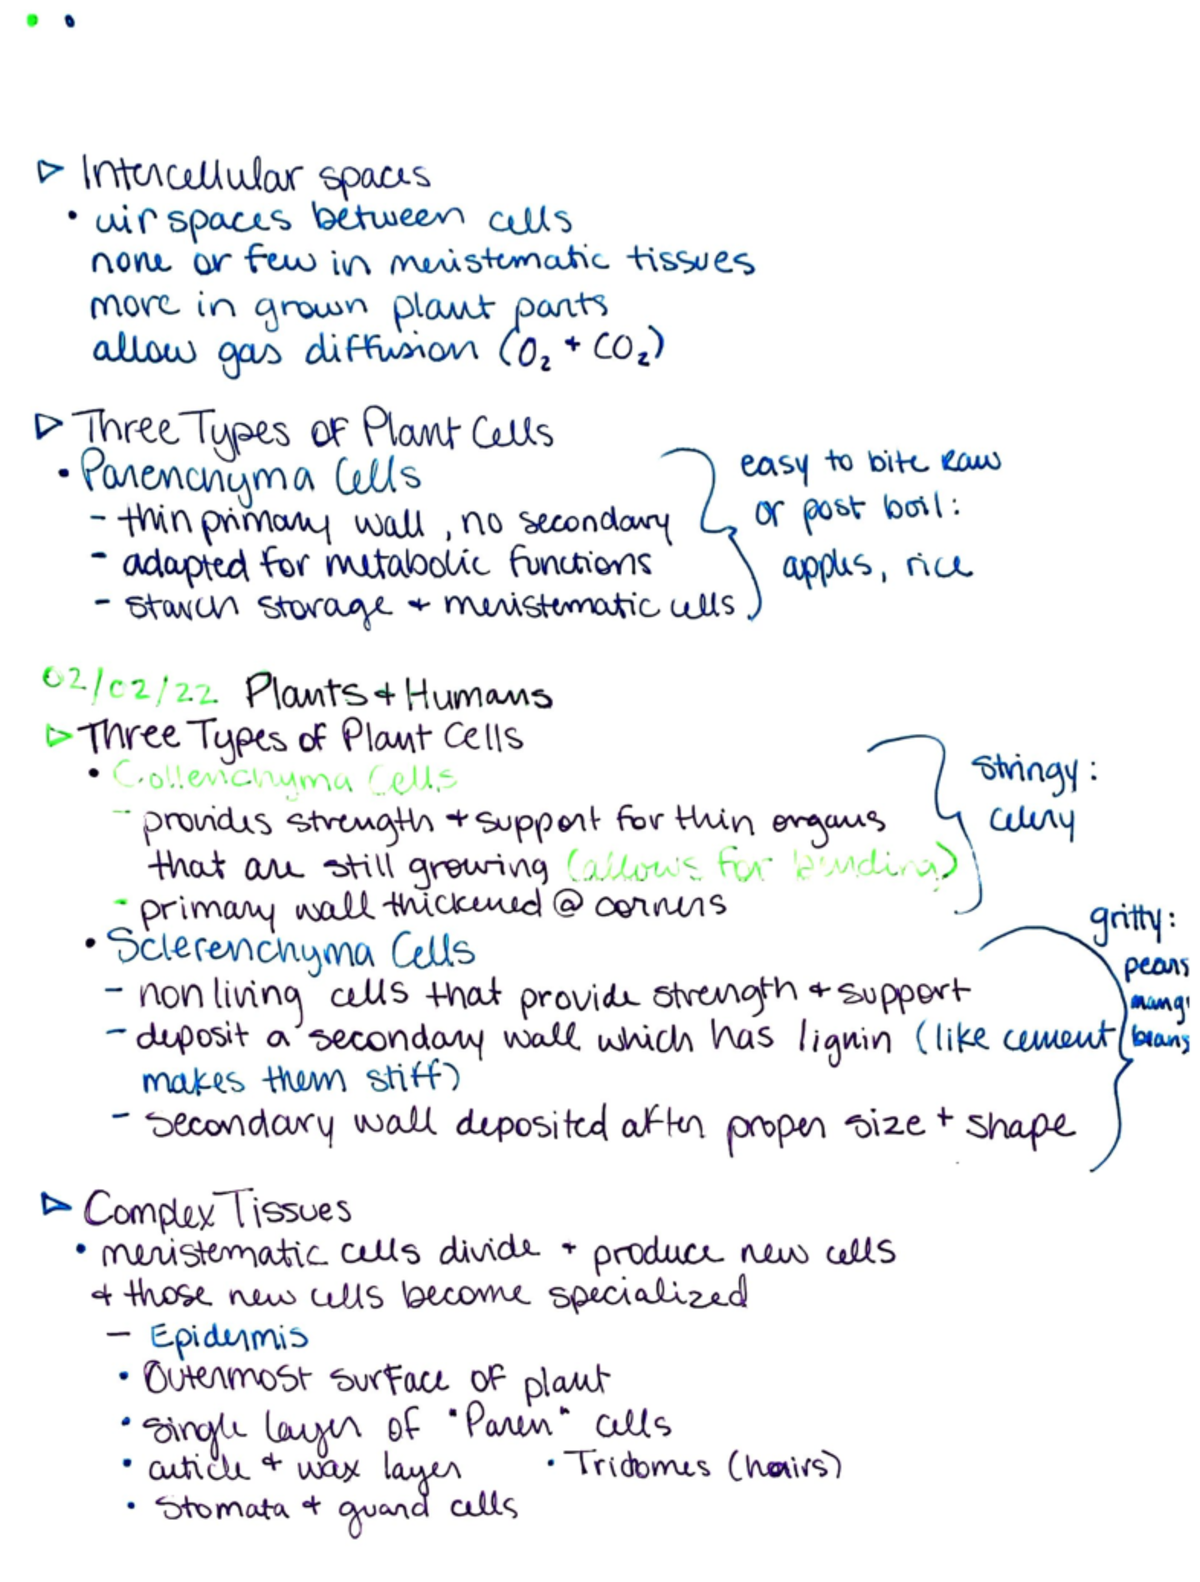 ▷ Intercellular spaces
• air spaces between cells
none or few in meristematic tissues
more in grown plant parts
allow gas diffusion (O₂ + CO₂)
▷ Three Types of Plant Cells
• Parenchyma Cells
- thin primary wall, no secondary
- adapted for metabolic functions
- starch storage + meristematic cells
easy to bite raw
or post boil:
apples, rice
02/02/22 Plants + Humans
▷ Three Types of Plant Cells
• Collenchyma Cells
- provides strength + support for thin organs
that are still growing (allows for bending)
- primary wall thickened @ corners
stringy:
celery
• Sclerenchyma Cells
- non living cells that provide strength + support
- deposit a secondary wall which has lignin (like cement
makes them stiff)
- secondary wall deposited after proper size + shape
gritty:
pears
mang
beans
▷ Complex Tissues
• meristematic cells divide + produce new cells
+ those new cells become specialized
- Epidermis
• Outermost surface of plant
• single layer of "Paren" cells
• cuticle + wax layer • Tricomes (hairs)
• Stomata + guard cells